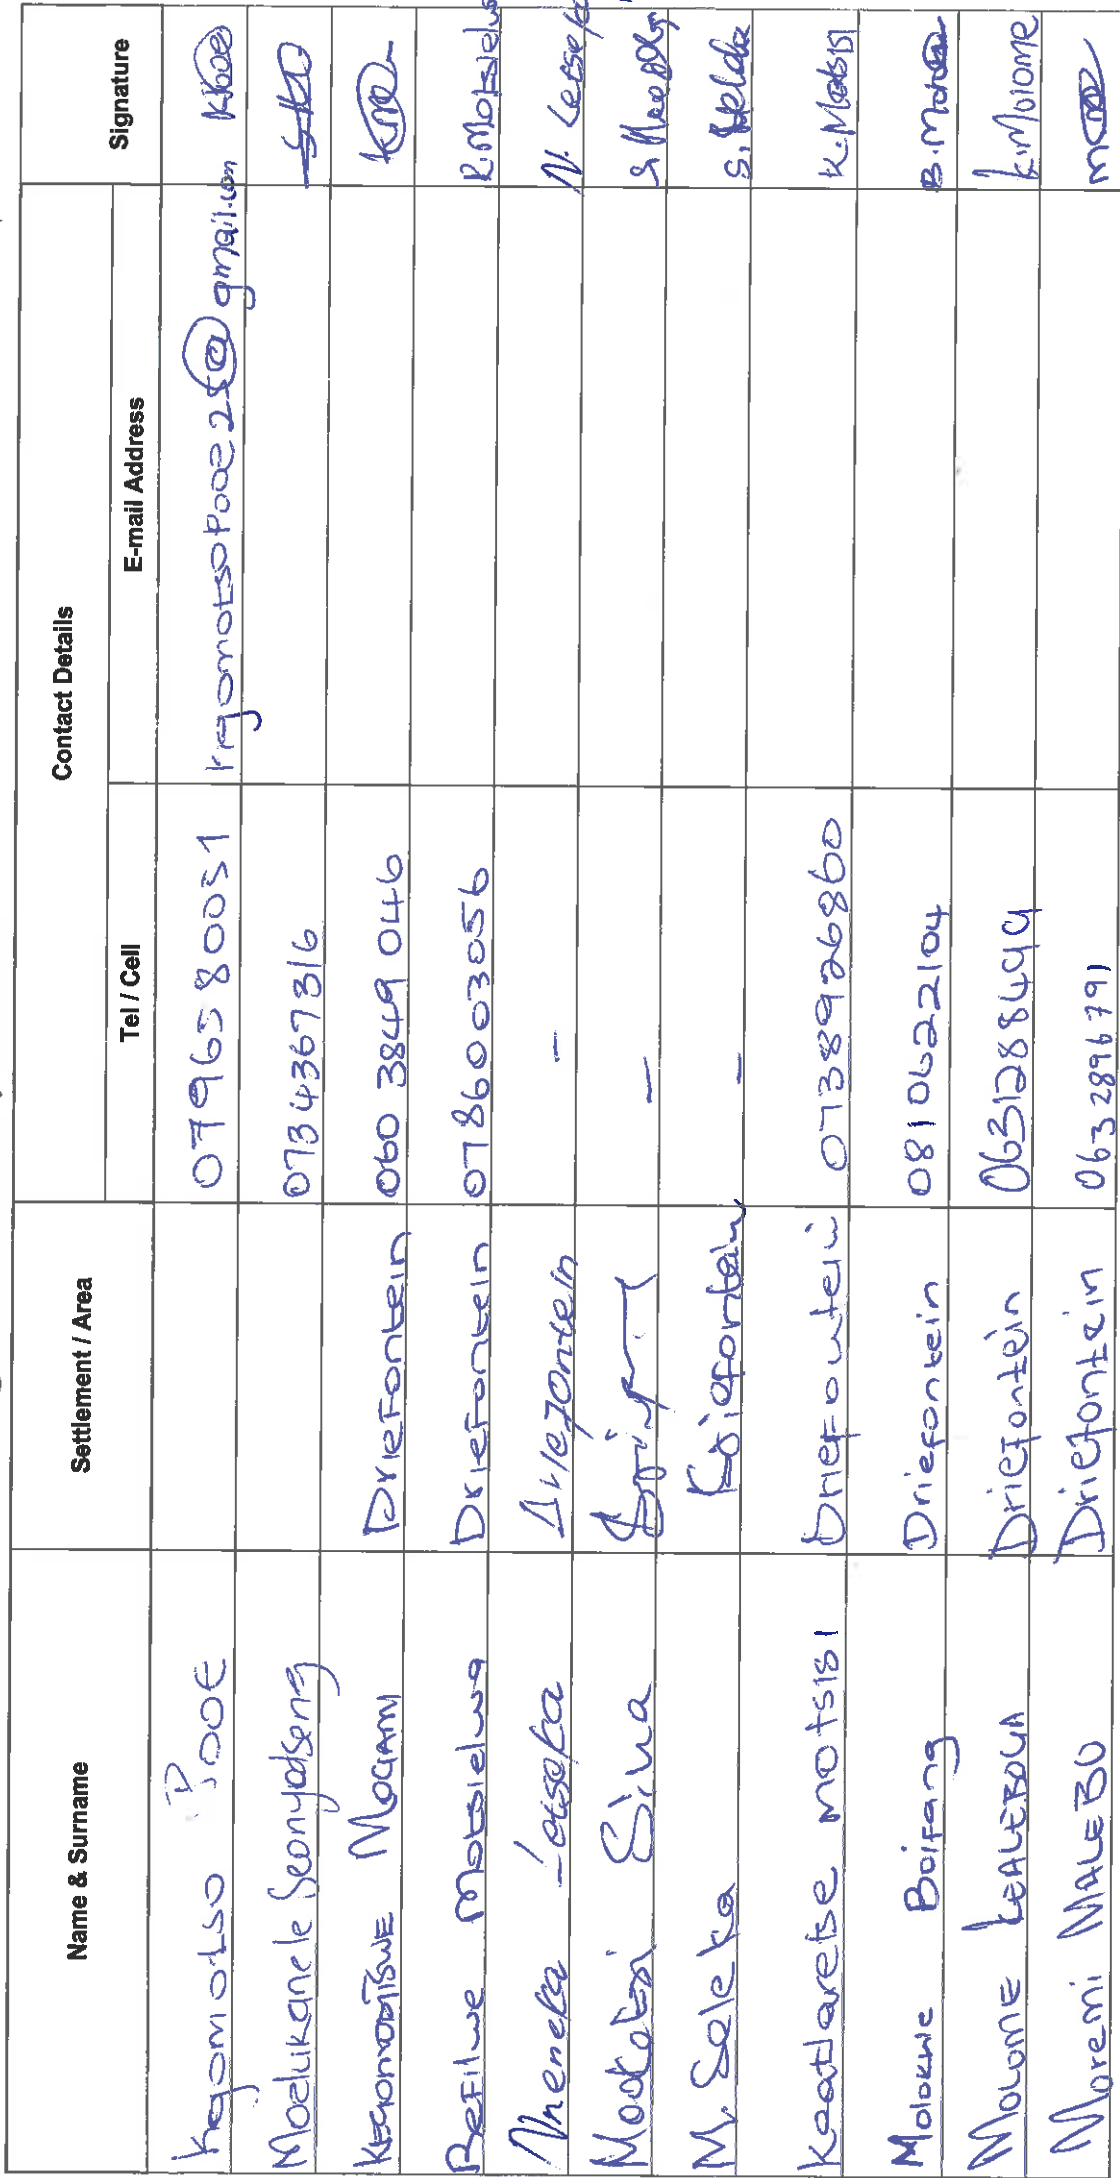 Name & Surname Settlement / Area Contact Details Signature
Tel / Cell E-mail Address
Kgomotso Pooe 0796580051 kgomotsoPooe25@gmail.com KPooe
Modukanele Seonyadseng 0734367316
KEGOMODITSWE MOGAMI DrieFontein 060 3849 046
BeFilwe Motsielwa DrieFontein 0786003056 R.Motsielwa
Nneneka Letseka Driefontein - N. Letseka
Mooketsi Sina - S
M. Seleka - S. Seleka
Keatlaretse Motsisi Driefontein 0738926860 K.Motsisi
Molokwe Boifang Driefontein 0810622104
MOLOME KEALEBOGA Driefontein 0631288449 k.Molome
Moremi MALEBO Driefontein 063 2896791